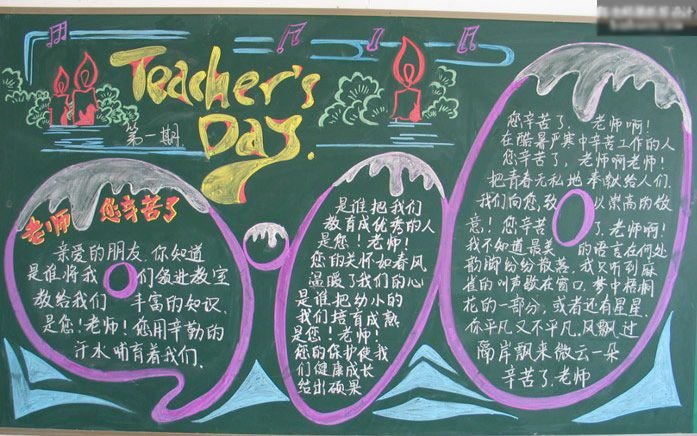 Teacher's
Day.
第一期
老师 您辛苦了
亲爱的朋友.你知道
是谁将我们领进教室
教给我们丰富的知识.
是您!老师!您用辛勤的
汗水哺育着我们.
是谁把我们
教育成优秀的人
是您!老师!
您的关怀如春风
温暖了我们的心
是谁把幼小的
我们培育成熟
是您!老师!
您的保护使我
们健康成长
结出硕果
您辛苦了,老师啊!
在酷暑严寒中辛苦工作的人
您辛苦了,老师啊老师!
把青春无私地奉献给人们.
我们向您,致以崇高的敬
意!您辛苦了,老师啊!
我不知道最美的语言在何处
韵脚纷纷散落,我只听到麻
雀的叫声歇在窗口,梦中梧桐
花的一部分,或者还有星星.
你平凡又不平凡,风飘过
隔岸飘来微云一朵
辛苦了.老师